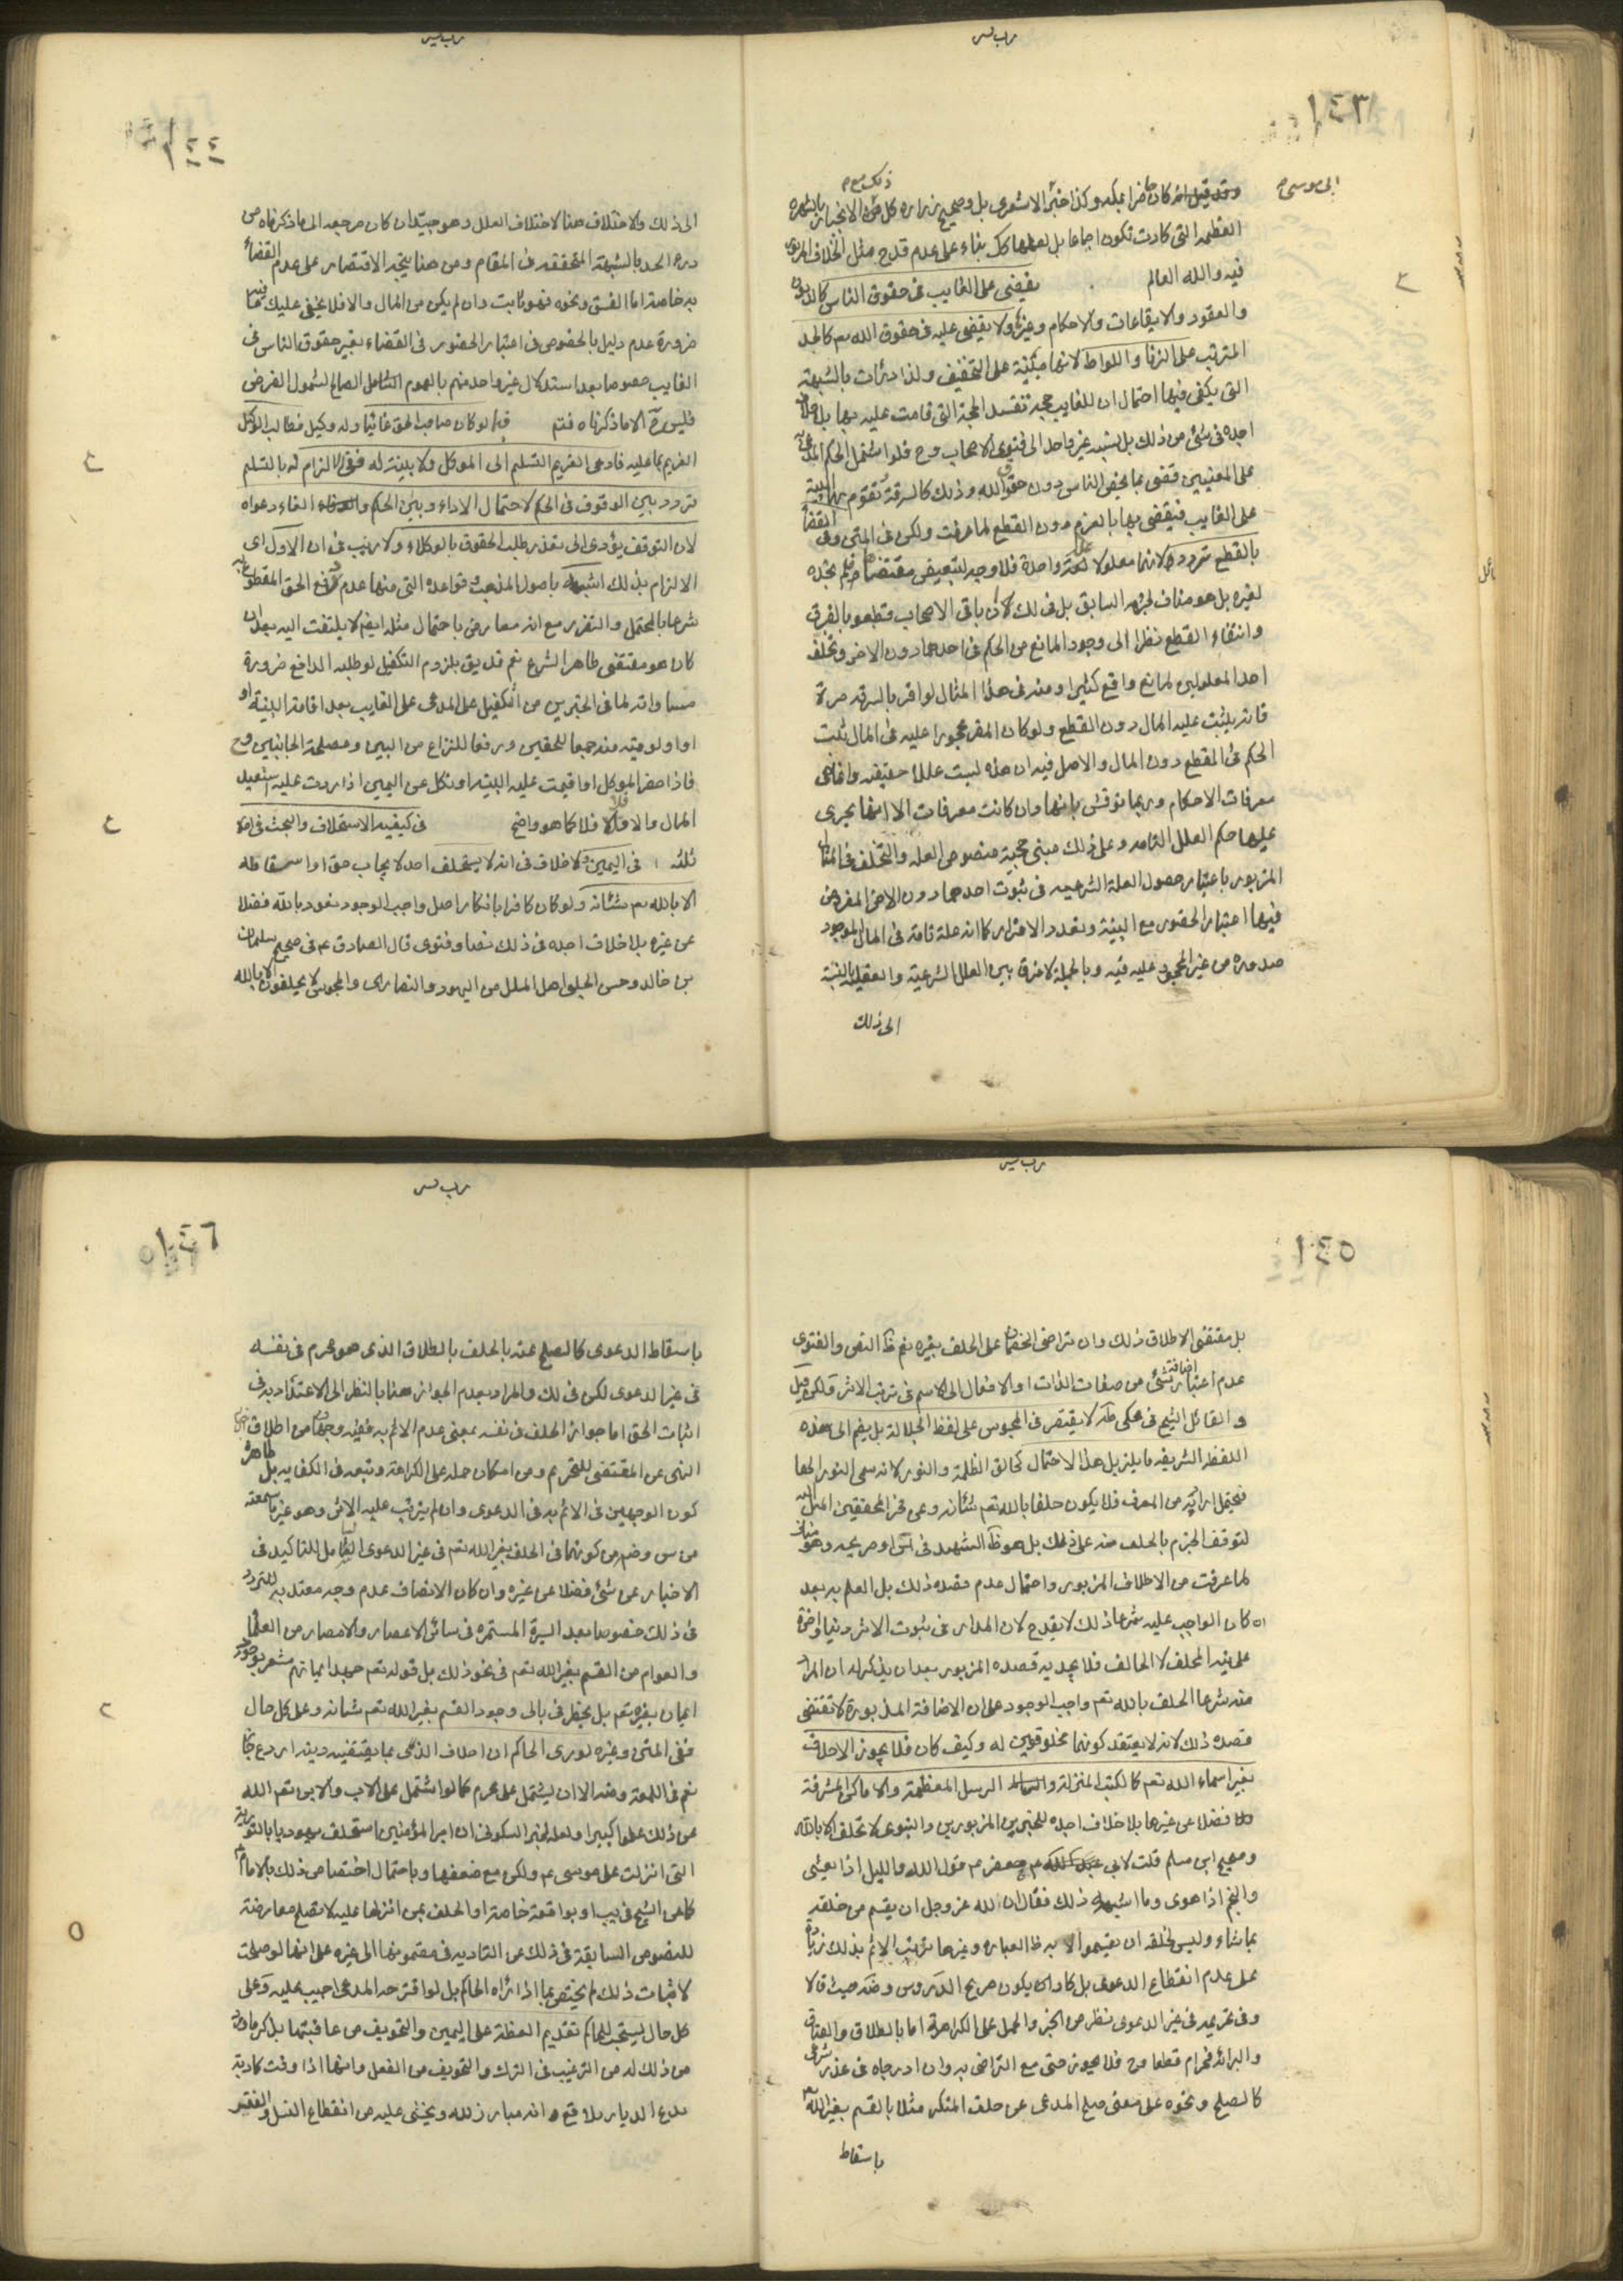 ١٤٣
ابى موسى
ذلك مع م
وقد قيل انه كان حاضرا بمكه وكذا خبر الاشعرى بل وصحيح زراره كل هذه الاخبار بالشهره
العظيمه التى كادت تكون اجماعا بل لعلها كك بناء على عدم قدح مثل الخلاف المزبور
فيه والله العالم يقضى على الغايب فى حقوق الناس كالديون
والعقود والايقاعات والاحكام وغيرها ولا يقضى عليه فى حقوق الله تعم كالحد
المترتب على الزنا واللواط لانها مبنيّة على التخفيف ولذا درئات بالشبهة
التى يكفى فيها احتمال ان للغايب حجة تفسد الحجة التى قامت عليه بها بل خلاف
اجده فى شئ من ذلك بل نسبه غير واحد الى فتوى الاصحاب وح فلو اشتمل الحكم المدعى به
على المعنيين قضى بما يختص الناس دون حقوق الله وذلك كالسرقة تقوم بها البينة
على الغايب فيقضى بها بالغرم دون القطع لما عرفت ولكن فى المتن وفى القضاء
بالقطع تردد لانهما معلولا علة واحدة فلا وجه لتبعيض مقتضاها ولم نجده
لغيره بل هو مناف لجزمه السابق بل فى لك ان باقى الاصحاب قطعوا بالفرق
وانتفاء القطع نظرا الى وجود المانع من الحكم فى احدهما دون الاخر وتخلف
احد المعلولين لمانع واقع كثيرا ومنه فى هذا المثال لو اقر بالسرقه مرة
فانه يثبت عليه المال دون القطع ولو كان المقر محجورا عليه فى المال ثبت
الحكم فى القطع دون المال والاصل فيه ان هذه ليست عللا حقيقه وانما هى
معرفات الاحكام وربما نوقش بانها وان كانت معرفات الا انها يجرى
عليها حكم العلل التامه وعلى ذلك مبنى حجية منصوص العله والتخلف فى المثال
المزبور باعتبار حصول العلة الشرعيه فى ثبوت احدهما دون الاخر المفروض
فيهما اعتبار الحضور مع البينة وتعدد الاقرار كما انه علة تامة فى المال الموجود
صدوره من غير المحجور عليه فيه وبالجملة لا فرق بين العلل الشرعية والعقليه بالنسبة
الى ذلك
١٤٤
الى ذلك والاختلاف هنا لاختلاف العلل وهو جيّد ان كان مرجعه الى ما ذكرناه من
درء الحد بالشبهة المتحققه فى المقام ومن هنا يتجه الاقتصار على عدم القضاء
به خاصة اما الفسق ونحوه فهو ثابت وان لم يكن من المال والا فلا يخفى عليك ما فيه
ضرورة عدم دليل بالخصوص فى اعتبار الحضور فى القضاء بغير حقوق الناس فى
الغايب خصوصا بعد استدلال غير واحد منهم بالعموم الشامل الصالح لشمول الفرض
فليس ح الا ما ذكرناه فتم ولو كان صاحب الحق غائبا وله وكيل فطالب الوكيل
الغريم بما عليه فادعى الغريم التسليم الى الموكل ولا بينة له ففى الالزام له بالتسليم
تردد بين الوقوف فى الحكم لاحتمال الاداء وبين الحكم والغاء دعواه
لان التوقف يؤدى الى تعذر طلب الحقوق بالوكلاء ولا ريب فى ان الاول اى
الالزام بذلك اشبه باصول المذهب وقواعده التى منها عدم رفع الحق المقطوع به
شرعا بالمحتمل والتغرير مع انه معارض باحتمال مثله ايضم لا يلتفت اليه بعد ان
كان هو مقتضى ظاهر الشرع نعم قد يق بلزوم التكفيل لو طلبه الدافع ضرورة
مساواته لما فى الخبرين من تكفيل على المدعى على الغايب بعد اقامة البينة او
او اولويته منه جمعا للحقين ورفعا للنزاع من البين ومصلحة الجانبين وح
فاذا حضر الموكل او اقيمت عليه البينه او نكل عن اليمين اذا ردت عليه استعيد
المال والا فلا كما هو واضح فى كيفية الاستحلاف والبحث فى امور
ثلثه ا فى اليمين ولا خلاف فى انه لا يستحلف احد لايجاب حق او اسقاطه
الا بالله تعم شانه ولو كان كافرا بانكار اصل واجب الوجود نعوذ بالله فضلا
عن غيره بلا خلاف اجده فى ذلك نصا وفتوى قال الصادق عم فى صحيح سليمان
بن خالد وحسن الحلبى اهل الملل من اليهود والنصارى والمجوس لا يحلفون الا بالله
١٤٥
بل مقتضى الاطلاق ذلك وان تراضى الخصمان على الحلف بغيره نعم ظ النص والفتوى
عدم اعتبار اضافة شئ من صفات الذات او الافعال الى الاسم فى ترتب الاثر ولكن قيل
والقائل الشيخ فى محكى ط لا يقتصر فى المجوس على لفظ الجلالة بل يضم الى هذه
اللفظه الشريفه ما يزيل هذا الاحتمال كخالق الظلمة والنور لانه سمى النور الها
فيحتمل ارادته من المعرف فلا يكون حلفا بالله تعم شئانه وعن فخر المحققين الميل اليه
لتوقف الجزم بالحلف منه على ذلك بل هو ظ الشهيد فى س او صريحه وهو مناف
لما عرفت من الاطلاق المزبور واحتمال عدم قصده ذلك بل العلم به بعد
ان كان الواجب عليه شرعا ذلك لا يقدح لان المدار فى ثبوت الاثر دنيا واخرة
على نية المحلف لا الحالف فلا يجديه قصده المزبور بعد ان يذكر له ان المراد
منه شرعا الحلف بالله تعم واجب الوجود على ان الاضافة المذبورة لا تقتضى
قصده ذلك لانه لا يعتقد كونهما مخلوقين له وكيف كان فلا يجوز الاحلاف
بغير اسماء الله تعم كالكتب المنزلة والرسل المعظمة والاماكن المشرفة
فضلا عن غيرها بلا خلاف اجده للخبرين المزبورين والنبوى لا تحلفوا الا بالله
وصحيح ابن مسلم قلت لابى جعفر عم قول الله والليل اذا يغشى
والنجم اذا هوى وما اشبه ذلك فقال ان الله عز وجل ان يقسم من خلقه
بما شاء وليس لخلقه ان يقسموا الا به ظ العباره وغيرها ترتب الاثم بذلك زيادة
على عدم انقطاع الدعوى بل كاد ان يكون صريح الدروس وضه حيث قالا
وفى تحريمه فى غير الدعوى نظر من الخبر والحمل على الكراهة اما بالطلاق والعتاق
والبرائه فحرام قطعا وح فلا يجوز حتى مع التراضى به وان ادرجاه فى عقد شرعى
كالصلح ونحوه على معنى صلح المدعى عن حلف المنكر مثلا بالقسم بغير الله تعم
باسقاط
١٤٦
باسقاط الدعوى كالصلح عنه بالحلف بالطلاق الذى هو محرم فى نفسه
فى غير الدعوى لكن فى لك والمراد بعدم الجواز هنا بالنظر الى الاعتداد به فى
اثبات الحق اما جواز الحلف فى نفسه بمعنى عدم الاثم به ففيه وجهان من اطلاق
النهى عن المقتضى للتحريم ومن امكان حمله على الكراهة وتبعه فى الكفايه بل ظاهره
كون الوجهين فى الاثم به فى الدعوى وان لم يترتب عليه الاثر وهو غير ما سمعته
من س وضه من كونهما فى الحلف بغير الله تعم فى غير الدعوى الشامل للتاكيد فى
الاخبار عن شئ فضلا عن غيره وان كان الانصاف عدم وجه معتد به للتردد
فى ذلك خصوصا بعد السيرة المستمره فى سائر الاعصار والامصار من العلماء
والعوام من القسم بغير الله تعم فى نحو ذلك بل قوله تعم جهد ايمانهم مشعر بوجود
ايمان بغيره تعم بل يخطر فى بالى وجود القسم بغير الله تعم شانه وعلى كل حال
ففى المتن وغيره لو راى الحاكم ان احلاف الذمى بما يقتضيه دينه اردع جاز
نعم فى اللمعة وضه الا ان يشتمل على محرم كما لو اشتمل على الاب والابن تعم الله
عن ذلك علوا كبيرا ولعله لخبر السكونى ان امير المؤمنين استحلف يهوديا بالتورية
التى انزلت على موسى عم ولكن مع ضعفها وباحتمال اختصاص ذلك بالامام
كما عن الشيخ فى يب او بواقعة خاصة او الحلف بمن انزلها عليه لا تصلح معارضة
للنصوص السابقة فى ذلك عن التاديه فى مضمونها الى غيره على انها لو صلحت
لاثبات ذلك لم يختص بما اذا رآه الحاكم بل لو اقترحه المدعى اجيب عليه وعلى
كل حال يستحب للحاكم تقديم العظة على اليمين والتخويف من عاقبتها بذكر ما ورد
من ذلك له من الترغيب فى الترك والتخويف من الفعل وانها اذا وقت كاذبة
تدع الديار بلاقع وانه مبارز لله ويخشى عليه من انقطاع النسل والفقر